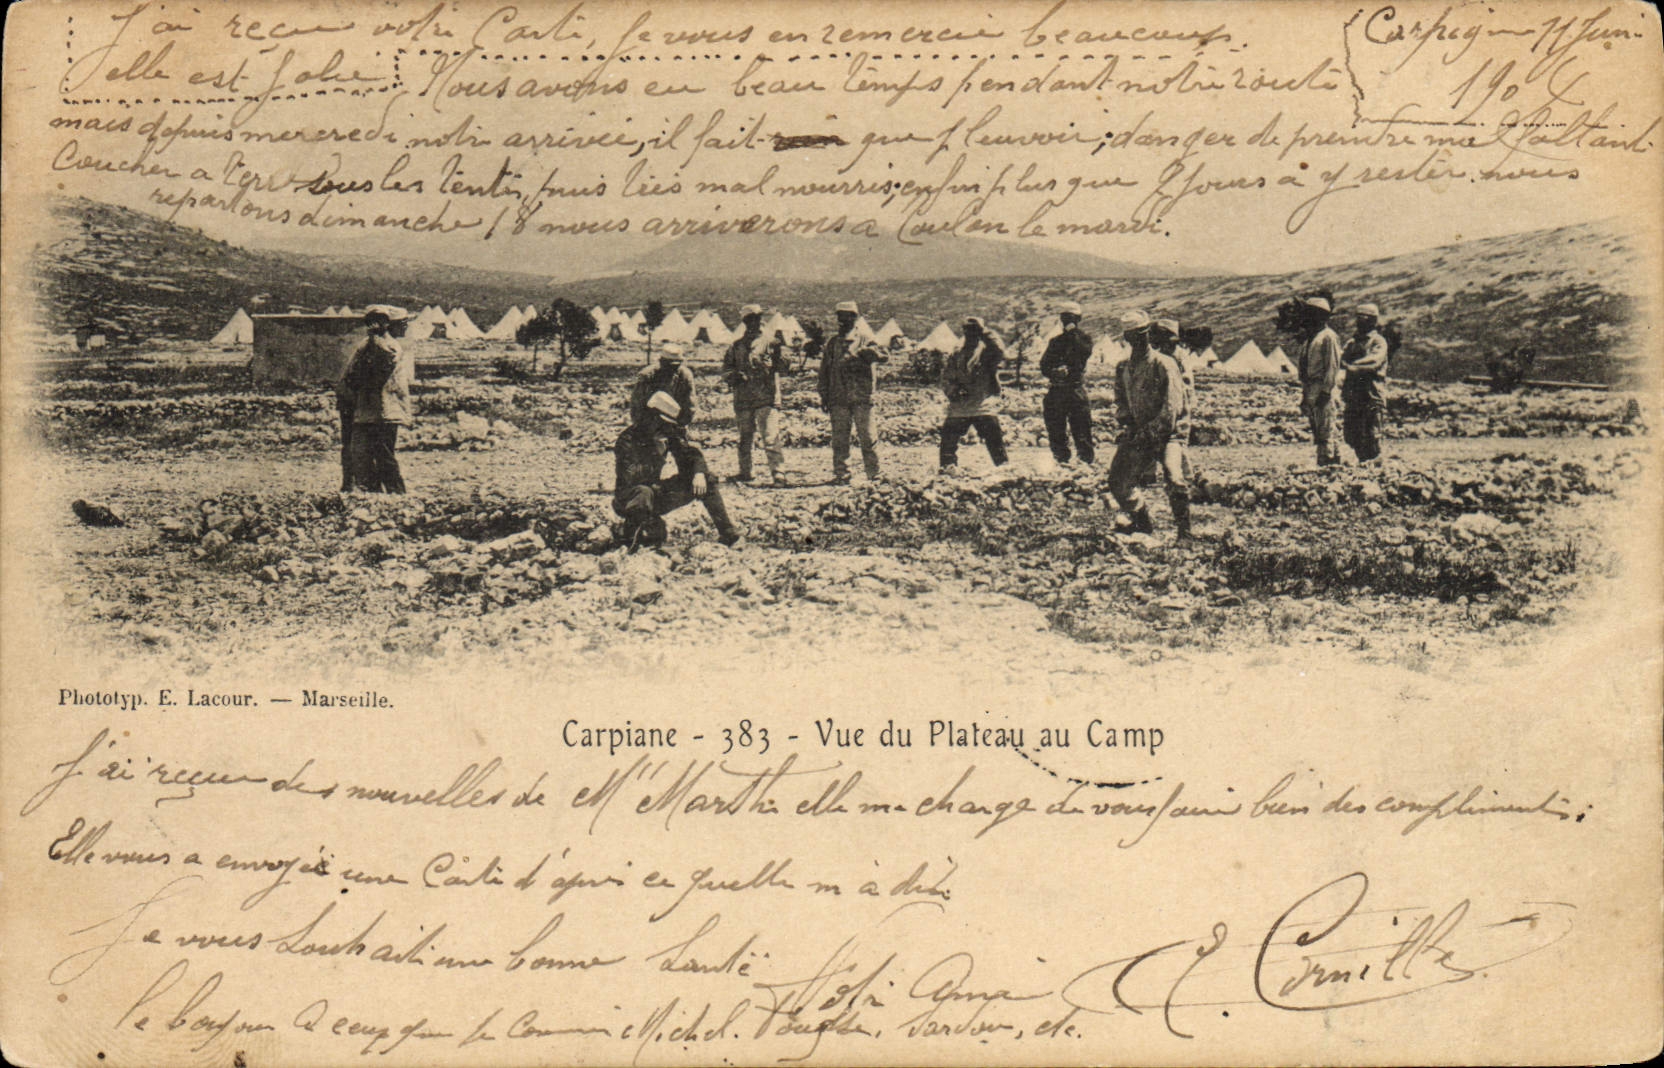 J'ai reçue votre Carte, je vous en remercie beaucoup.
elle est Jolie Nous avons eu beau temps pendant notre route
mais depuis mercredi notre arrivée, il fait que pleuvoir, danger de prendre mal faltant
Coucher a terre sous les tentes, puis très mal nourris, enfin plus que 7 jours à y rester. nous
repartons dimanche 18 nous arriverons a Toulon le mardi.
Carpiagne 11 Juin
190
Phototyp. E. Lacour. — Marseille.
Carpiane - 383 - Vue du Plateau au Camp
J'ai reçue des nouvelles de Mlle Marthe elle me charge de vous faire bien des compliments.
Elle vous a envoyée une Carte d'après ce quelle m'a dit.
Je vous souhaite une bonne Santé
Votre Ami E. Cornille
le bonjour a ceux que je connais Michel. , etc.